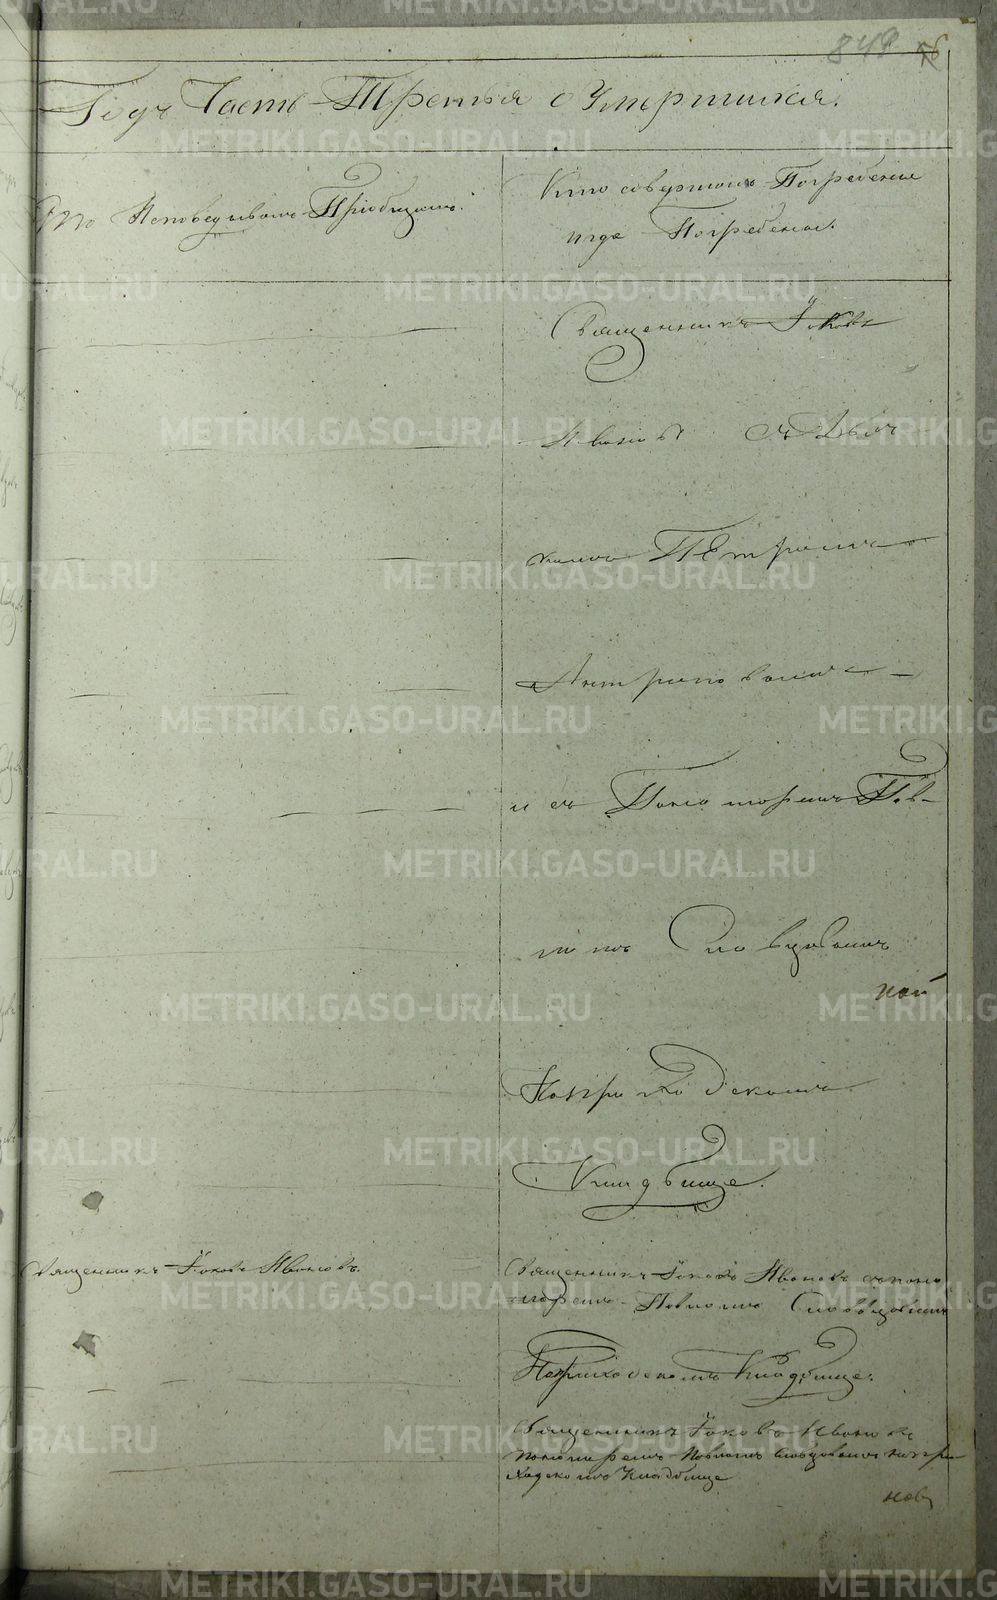 848
Годъ Часть Третья о Умершихъ.
Кто Исповедывалъ и Приобщалъ.
Кто совершалъ Погребение
и где Погребены.
Священникъ Іаковъ
Ивановъ съ Дьяч
комъ Петромъ
Антроповымъ
и съ Пономоремъ Пав
ломъ Словцовымъ
на
На приходскомъ
Кладбище.
Священникъ Іаковъ Ивановъ.
Священникъ Іаковъ Ивановъ с поно
моремъ Павломъ Словцовымъ
На приходскомъ Кладбище.
Священникъ Іаковъ Ивановъ
пономоремъ Павломъ Словцовымъ на при
ходскомъ Кладбище
METRIKI.GASO-URAL.RU